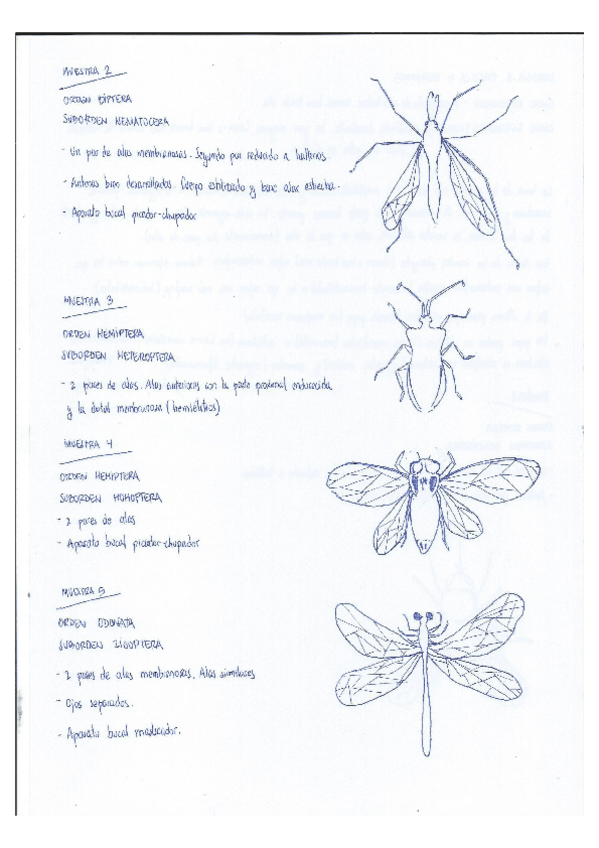 MUESTRA 2
ORDEN DÍPTERA
SUBORDEN NEMATOCERA
- Un par de alas membranosas. Segundo par reducido a halterios.
- Antenas bien desarrolladas. Cuerpo estilizado y base alar estrecha.
- Aparato bucal picador-chupador
MUESTRA 3
ORDEN HEMIPTERA
SUBORDEN HETEROPTERA
- 2 pares de alas. Alas anteriores con la parte proximal endurecida
y la distal membranosa (hemiélitros)
MUESTRA 4
ORDEN HEMIPTERA
SUBORDEN HOMOPTERA
- 2 pares de alas
- Aparato bucal picador-chupador
MUESTRA 5
ORDEN ODONATA
SUBORDEN ZIGOPTERA
- 2 pares de alas membranosas. Alas similares
- Ojos separados.
- Aparato bucal masticador.